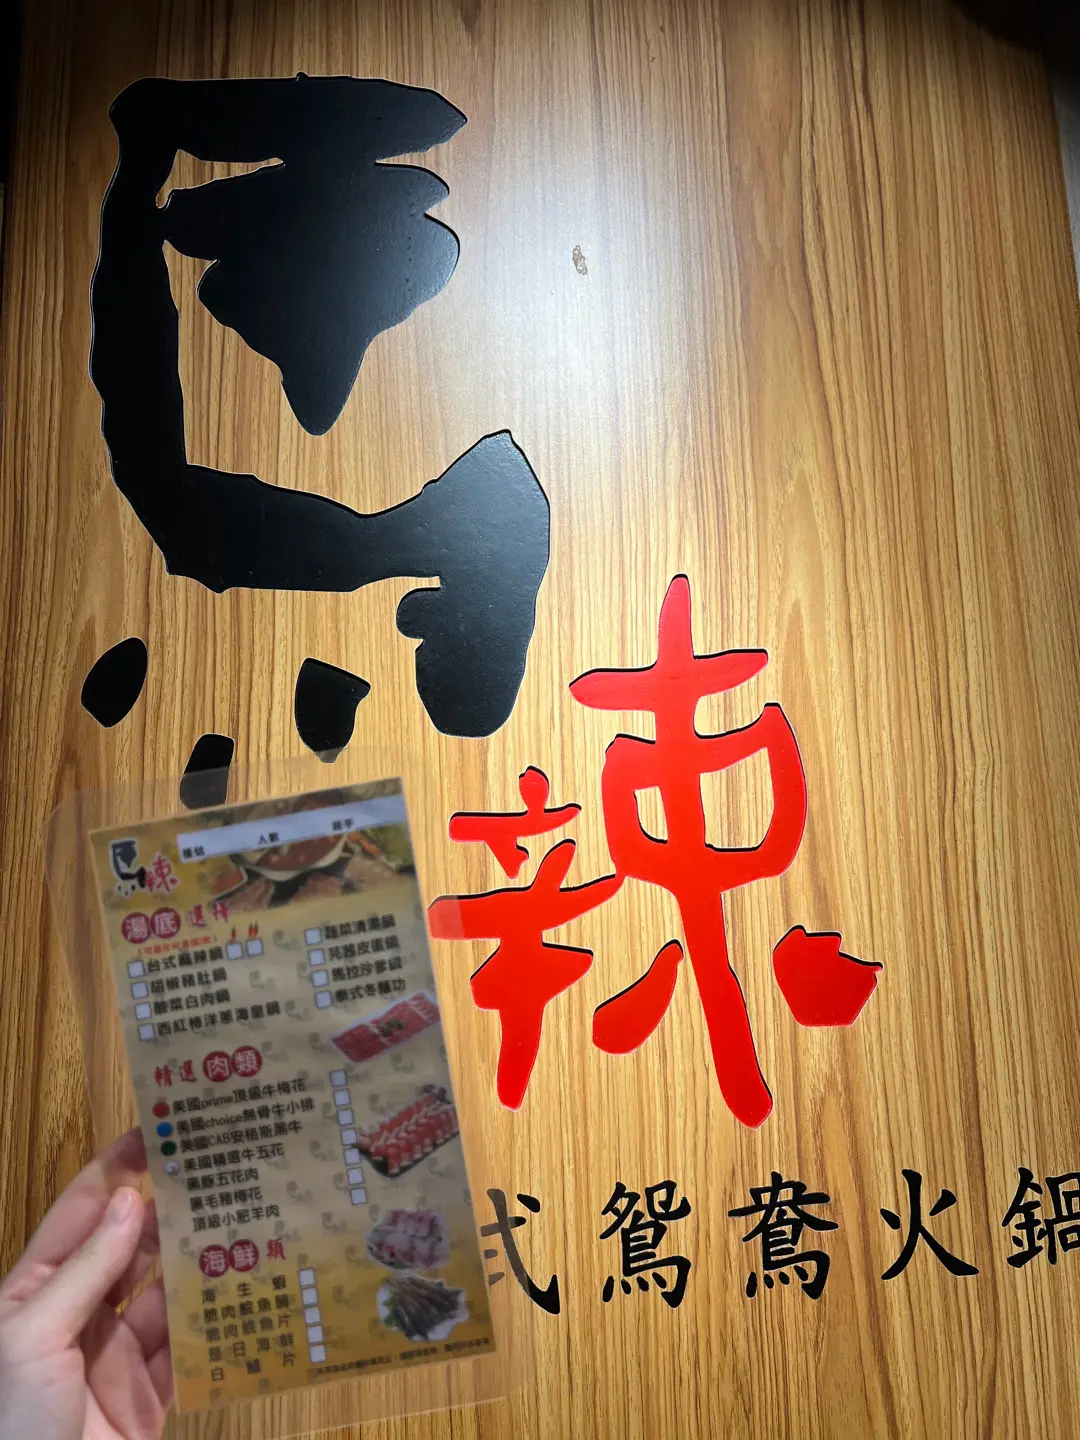 馬
辣
式鴛鴦火鍋
馬辣
檯號 人數 經手
湯底選擇
台式麻辣鍋
胡椒豬肚鍋
酸菜白肉鍋
西紅柿洋蔥海皇鍋
蔬菜清湯鍋
芫茜皮蛋鍋
馬拉沙爹鍋
泰式冬蔭功
精選肉類
美國prime頂級牛梅花
美國choice無骨牛小排
美國CAB安格斯黑牛
美國精選牛五花
黑豚五花肉
黑毛豬梅花
頂級小肥羊肉
海鮮類
海生蝦
脆肉鯇魚腩
脆肉鯇魚片
是日海鮮
白鱔片